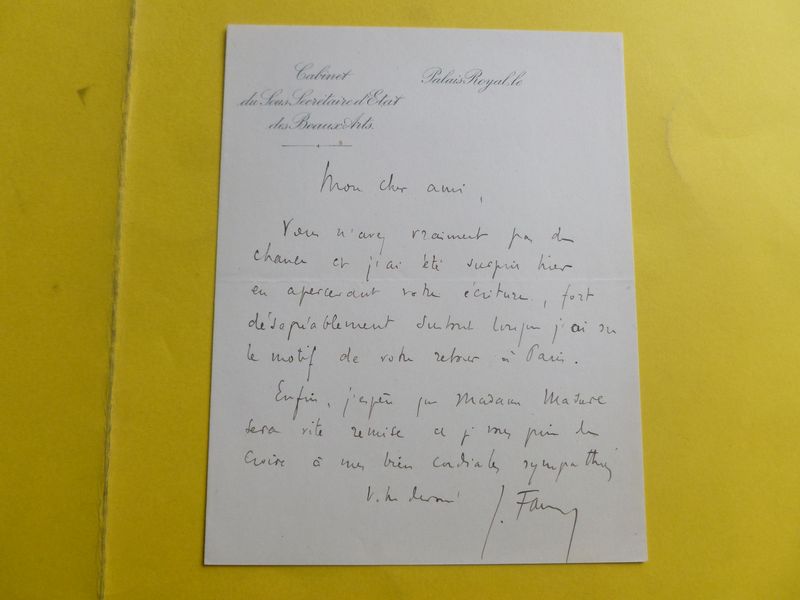 Cabinet
du Sous Secrétaire d'Etat
des Beaux Arts.
Palais Royal, le
Mon cher ami,
Vous n'avez vraiment pas de
chance et j'ai été surpris hier
en apercevant votre écriture, fort
désagréablement surtout lorsque j'ai su
le motif de votre retour à Paris.
Enfin, j'espère que Madame Masure
sera vite remise et je vous prie de
croire à mes bien cordiales sympathies
V. tr. dévoué